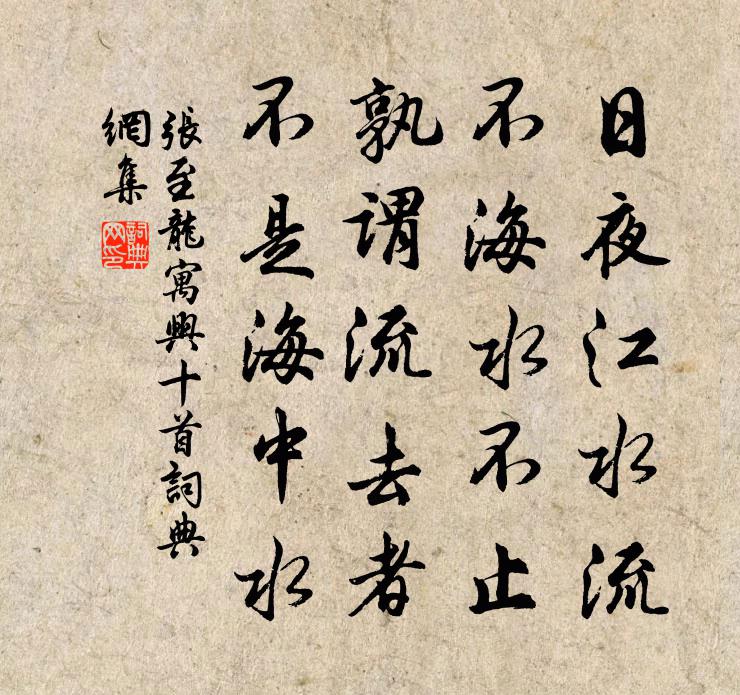 日夜江水流
不海水不止
孰謂流去者
不是海中水
張至龍寓興十首詞典
網集
詞典网印